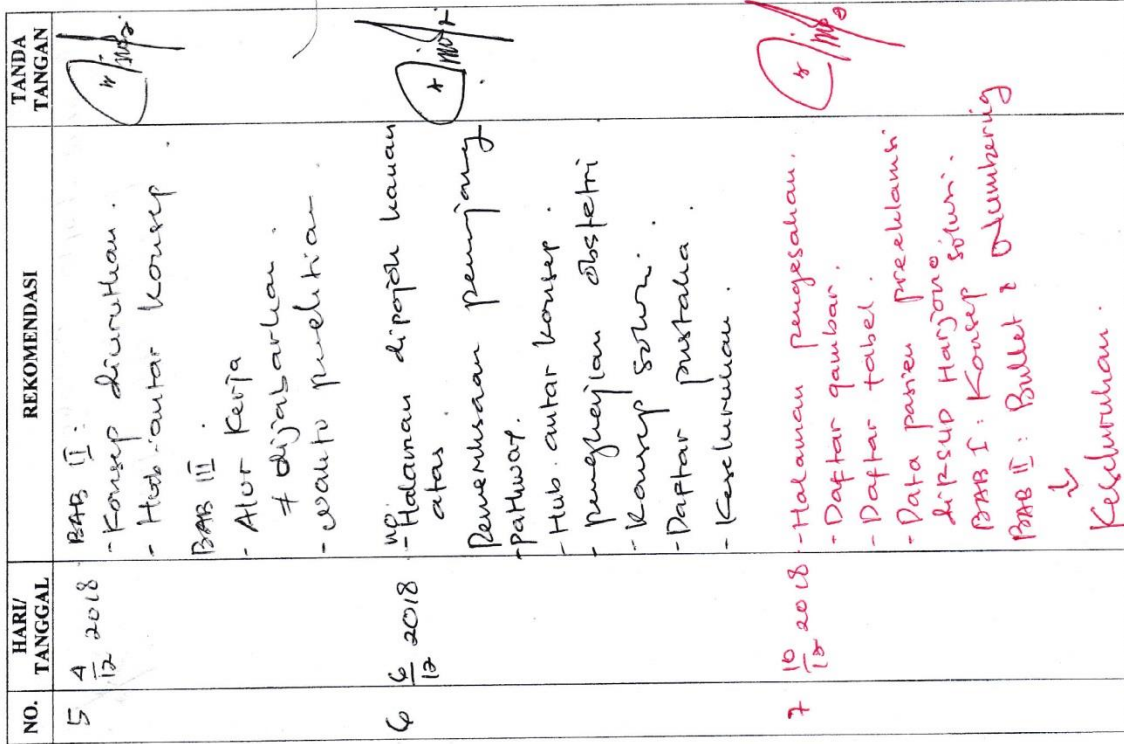 NO.
HARI/
TANGGAL
REKOMENDASI
TANDA
TANGAN
5
4/12 2018
BAB II :
- Konsep diurutkan.
- Hub. antar konsep
BAB III.
- Alur Kerja
+ dijabarkan.
- waktu penelitian
6
6/12 2018
no.
- Halaman dipojok kanan
atas.
Pemeriksaan penunjang
- pathway.
- Hub. antar konsep.
- pengkajian obstetri
- Konsep solusi.
- Daftar pustaka
- Keseluruhan.
7
10/12 2018
- Halaman pengesahan.
- Daftar gambar.
- Daftar tabel.
- Data pasien preeklamsi
di RSUD Harjono
BAB I : Konsep solusi.
BAB II : Bullet & Numbering
↓
Keseluruhan.